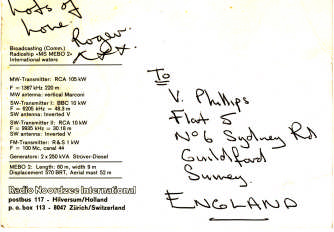 lots of
love
Roger
xxx
Broadcasting (Comm.)
Radioship «MS MEBO 2»
International waters
MW-Transmitter: RCA 105 kW
F = 1367 kHz 220 m
MW antenna: vertical Marconi
SW-Transmitter I: BBC 10 kW
F = 6205 kHz = 48.3 m
SW antenna: Inverted V
SW-Transmitter II: RCA 10 kW
F = 9935 kHz = 30.18 m
SW antenna: Inverted V
FM-Transmitter: R&S 1 kW
F = 100 Mc, canal 44
Generators: 2 x 250 kVA Strüver-Diesel
MEBO 2: Length: 80 m, width 9 m
Displacement 570 BRT, Aerial mast 52 m
Radio Noordzee International
postbus 117 - Hilversum/Holland
p. o. box 113 - 8047 Zürich/Switzerland
To
V. Phillips
Flat 5
Nº6 Sydney Rd
Guildford
Surrey
ENGLAND